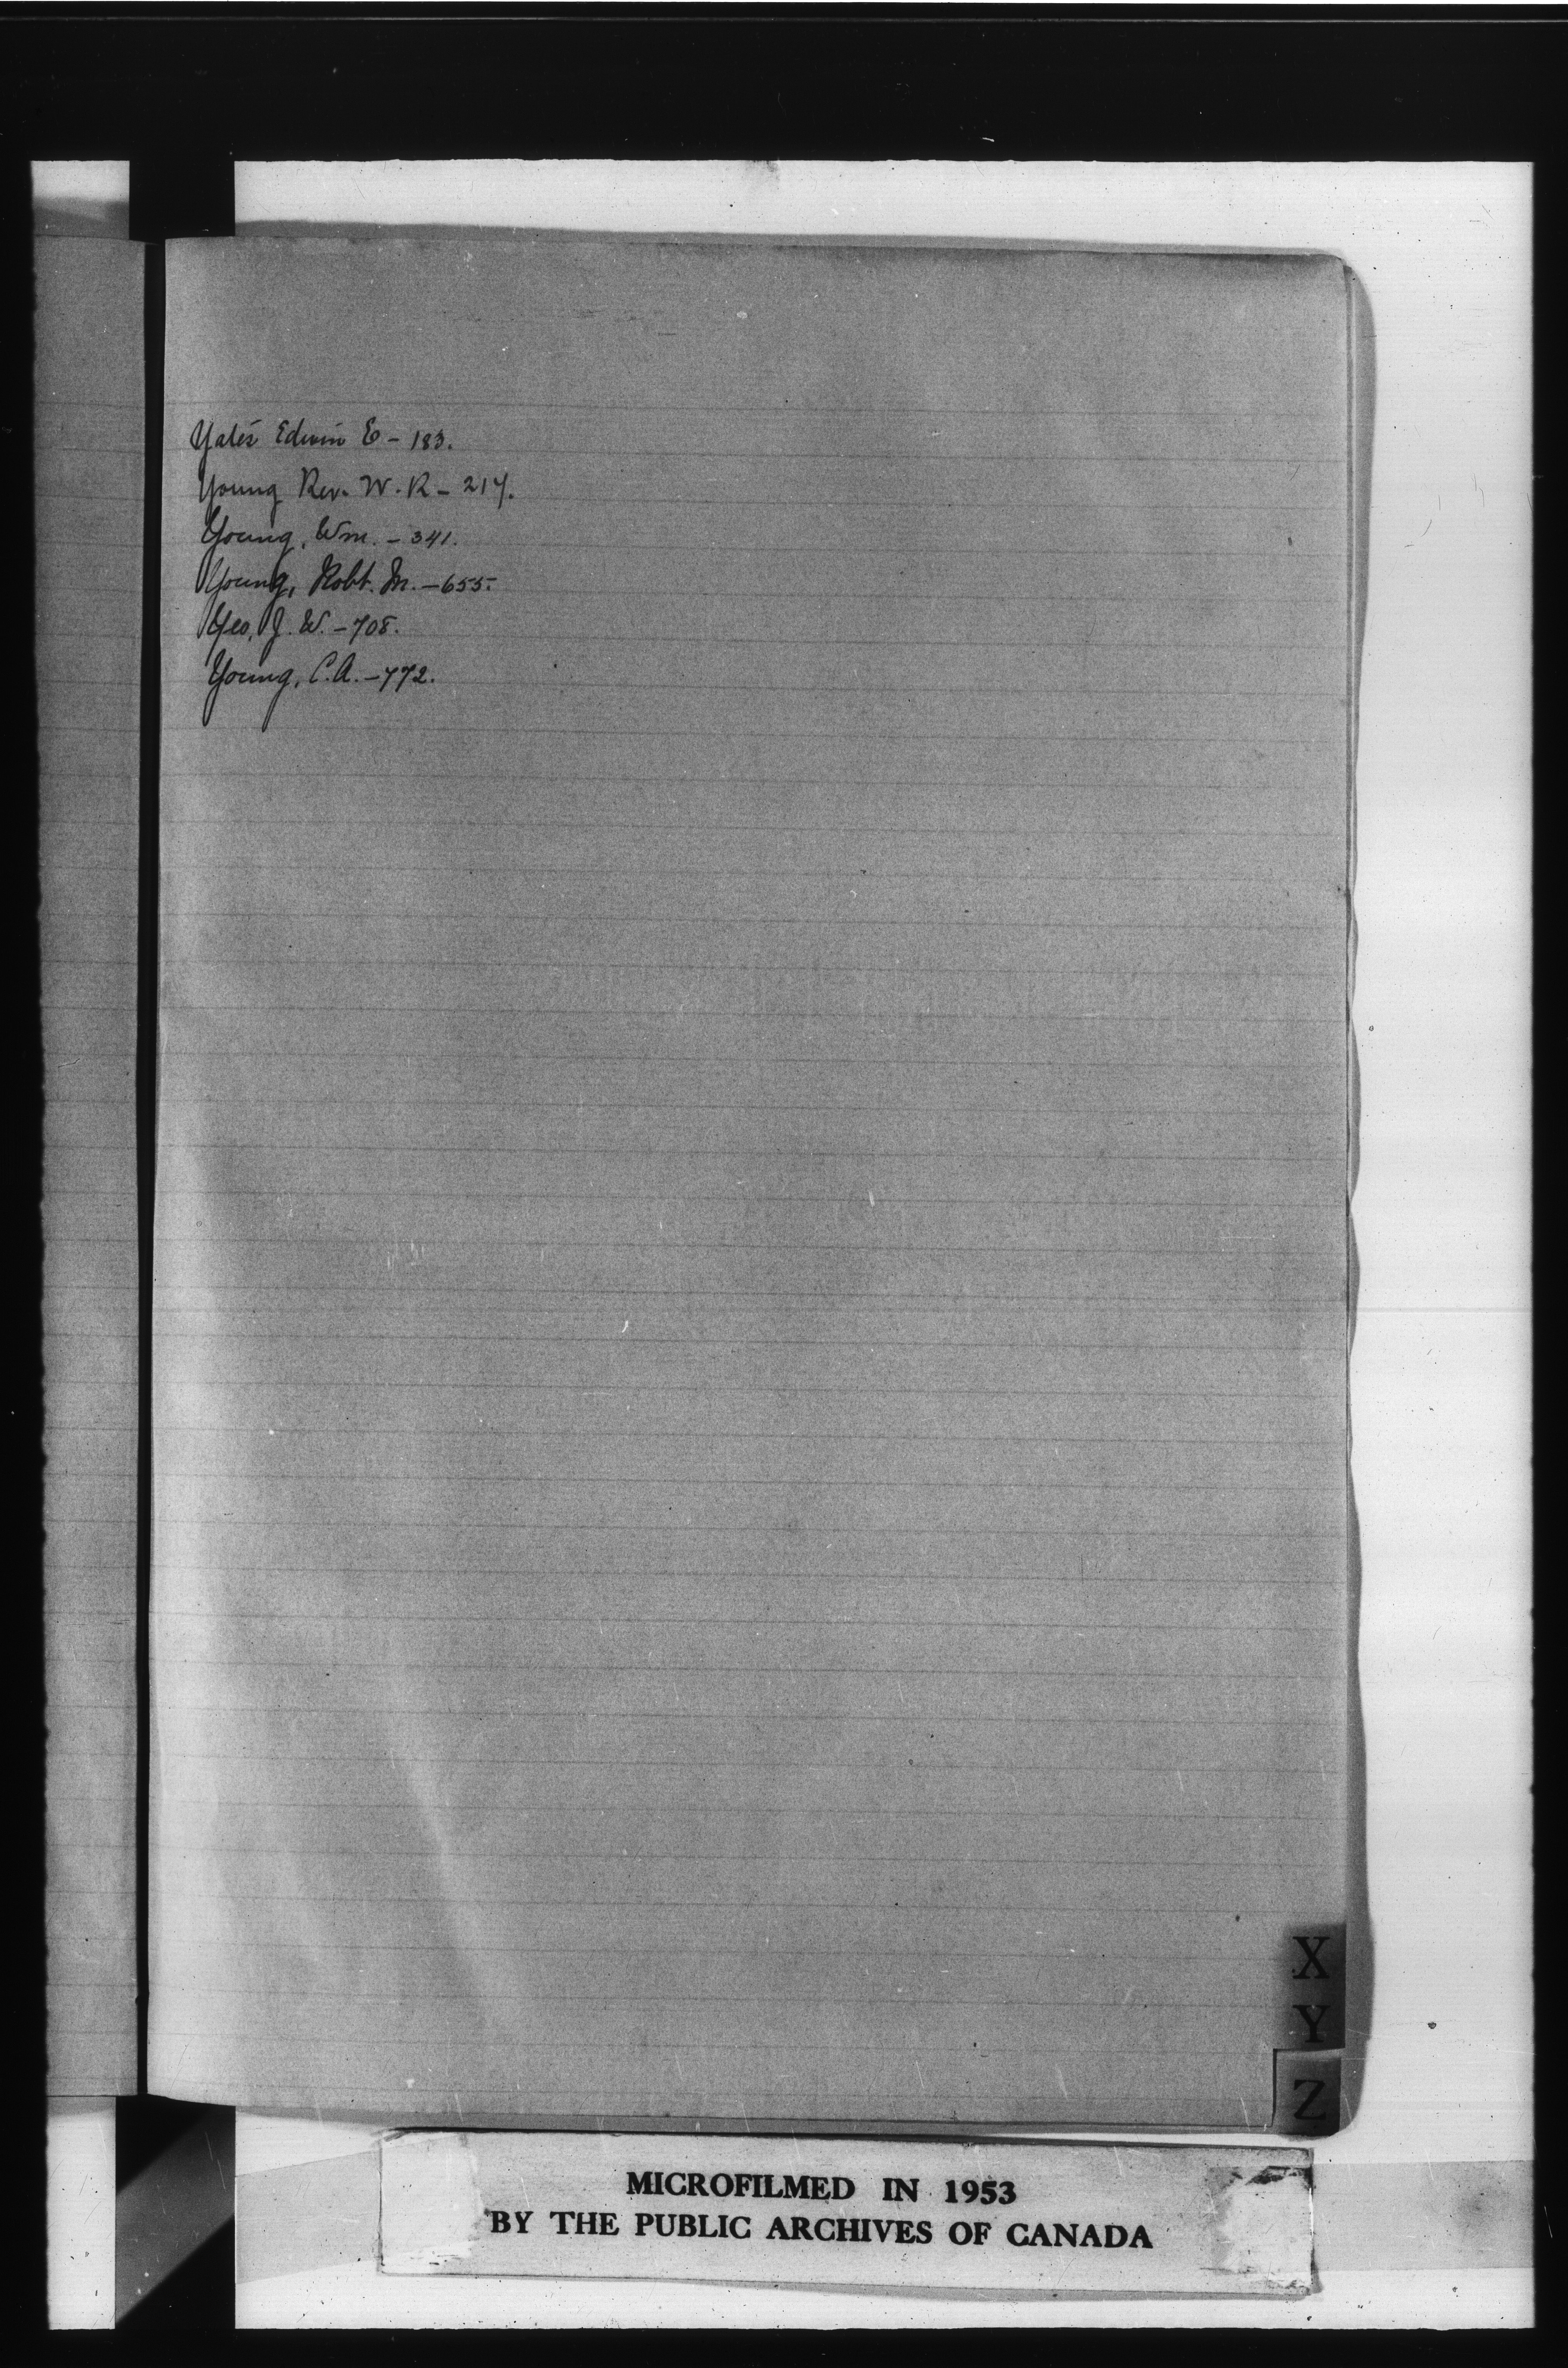 Yates Edwin E - 183.
Young Rev. W. R - 217.
Young, Wm. - 341.
Young, Robt. M. - 655.
Yeo, J. W. - 708.
Young, C. A. - 772.
X
Y
Z
MICROFILMED IN 1953
BY THE PUBLIC ARCHIVES OF CANADA